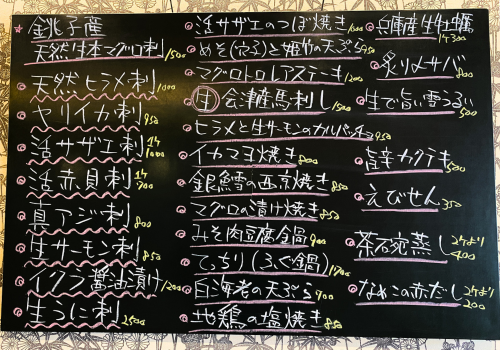 ★銚子産
天然生本マグロ刺 1500
天然ヒラメ刺 1000
ヤリイカ刺 950
活サザエ刺 1ケ 1000
活赤貝刺 1ケ 900
真アジ刺 800
生サーモン刺 850
イクラ醤油漬け 1200
生うに刺 2500
活サザエのつぼ焼き 1000
めそ(穴子)と姫竹の天ぷら 950
マグロトロレアステーキ 1200
生 会津産馬刺し 1500
ヒラメと生サーモンのカルパッチョ 950
イカマヨ焼き 800
銀鱈の西京焼き 850
マグロの漬け焼き 850
みそ肉豆腐鍋 900
てっちり(ふぐ鍋) 1700
白海老の天ぷら 900
地鶏の塩焼き 850
兵庫産生牡蠣 1ケ 300
炙り〆サバ 800
生で旨い雪うるい 500
旨辛カクテキ 500
えびせん 350
茶わん蒸し 2ケより 400
なめこの赤だし 2ケより 200